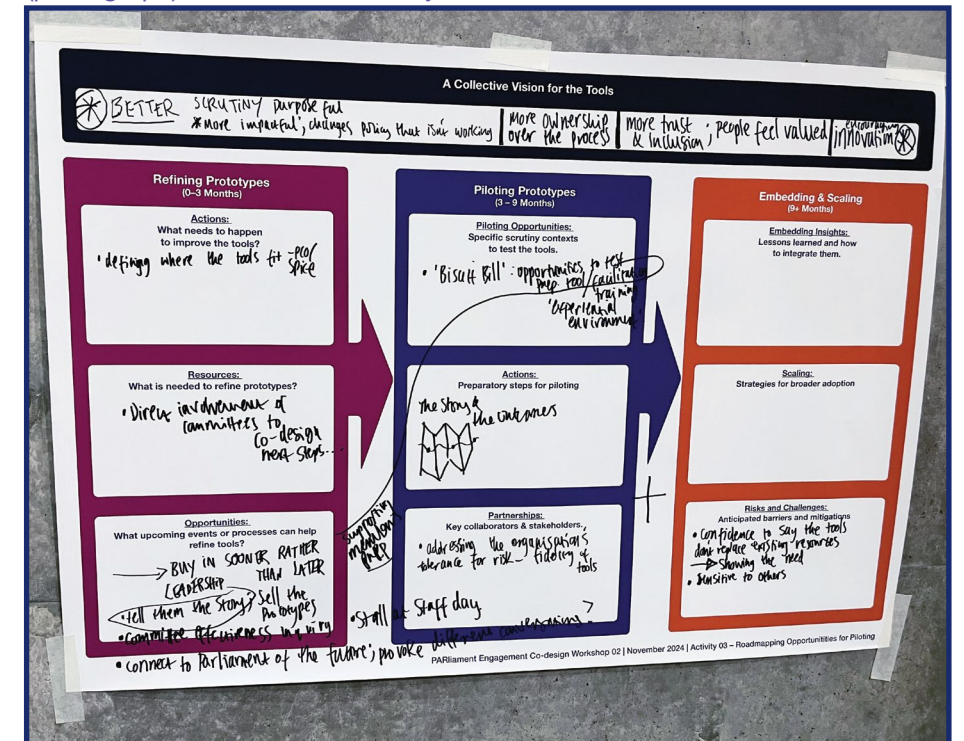 A Collective Vision for the Tools
BETTER SCRUTINY purposeful
*More impactful; changes policy that isn't working
More ownership
over the process
More trust
& inclusion; people feel valued
encouraging
innovation
Refining Prototypes
(0–3 Months)
Actions:
What needs to happen
to improve the tools?
• defining where the tools fit -
SPICe
Resources:
What is needed to refine prototypes?
• Direct involvement of
committees to
co-design
next steps...
Opportunities:
What upcoming events or processes can help
refine tools?
BUY IN SOONER RATHER
THAN LATER
LEADERSHIP
• tell them the story? Sell the
Prototypes
• Committee effectiveness inquiry
• connect to Parliament of the future; provoke different conversations.
Piloting Prototypes
(3 – 9 Months)
Piloting Opportunities:
Specific scrutiny contexts
to test the tools.
• 'Biscuit Bill': opportunities to test
prep. tool/facilitation
training
'experiential
environment'
Actions:
Preparatory steps for piloting
The story &
the outcomes
supporting
members
prep
Partnerships:
Key collaborators & stakeholders.
• addressing the organisation's
tolerance for risk – fidelity of
tools
• Stall at Staff day
Embedding & Scaling
(9+ Months)
Embedding Insights:
Lessons learned and how
to integrate them.
Scaling:
Strategies for broader adoption
Risks and Challenges:
Anticipated barriers and mitigations
• Confidence to say the tools
don't replace existing resources
Showing the need
• Sensitive to others
PARliament Engagement Co-design Workshop 02 | November 2024 | Activity 03 – Roadmapping Opportunitities for Piloting